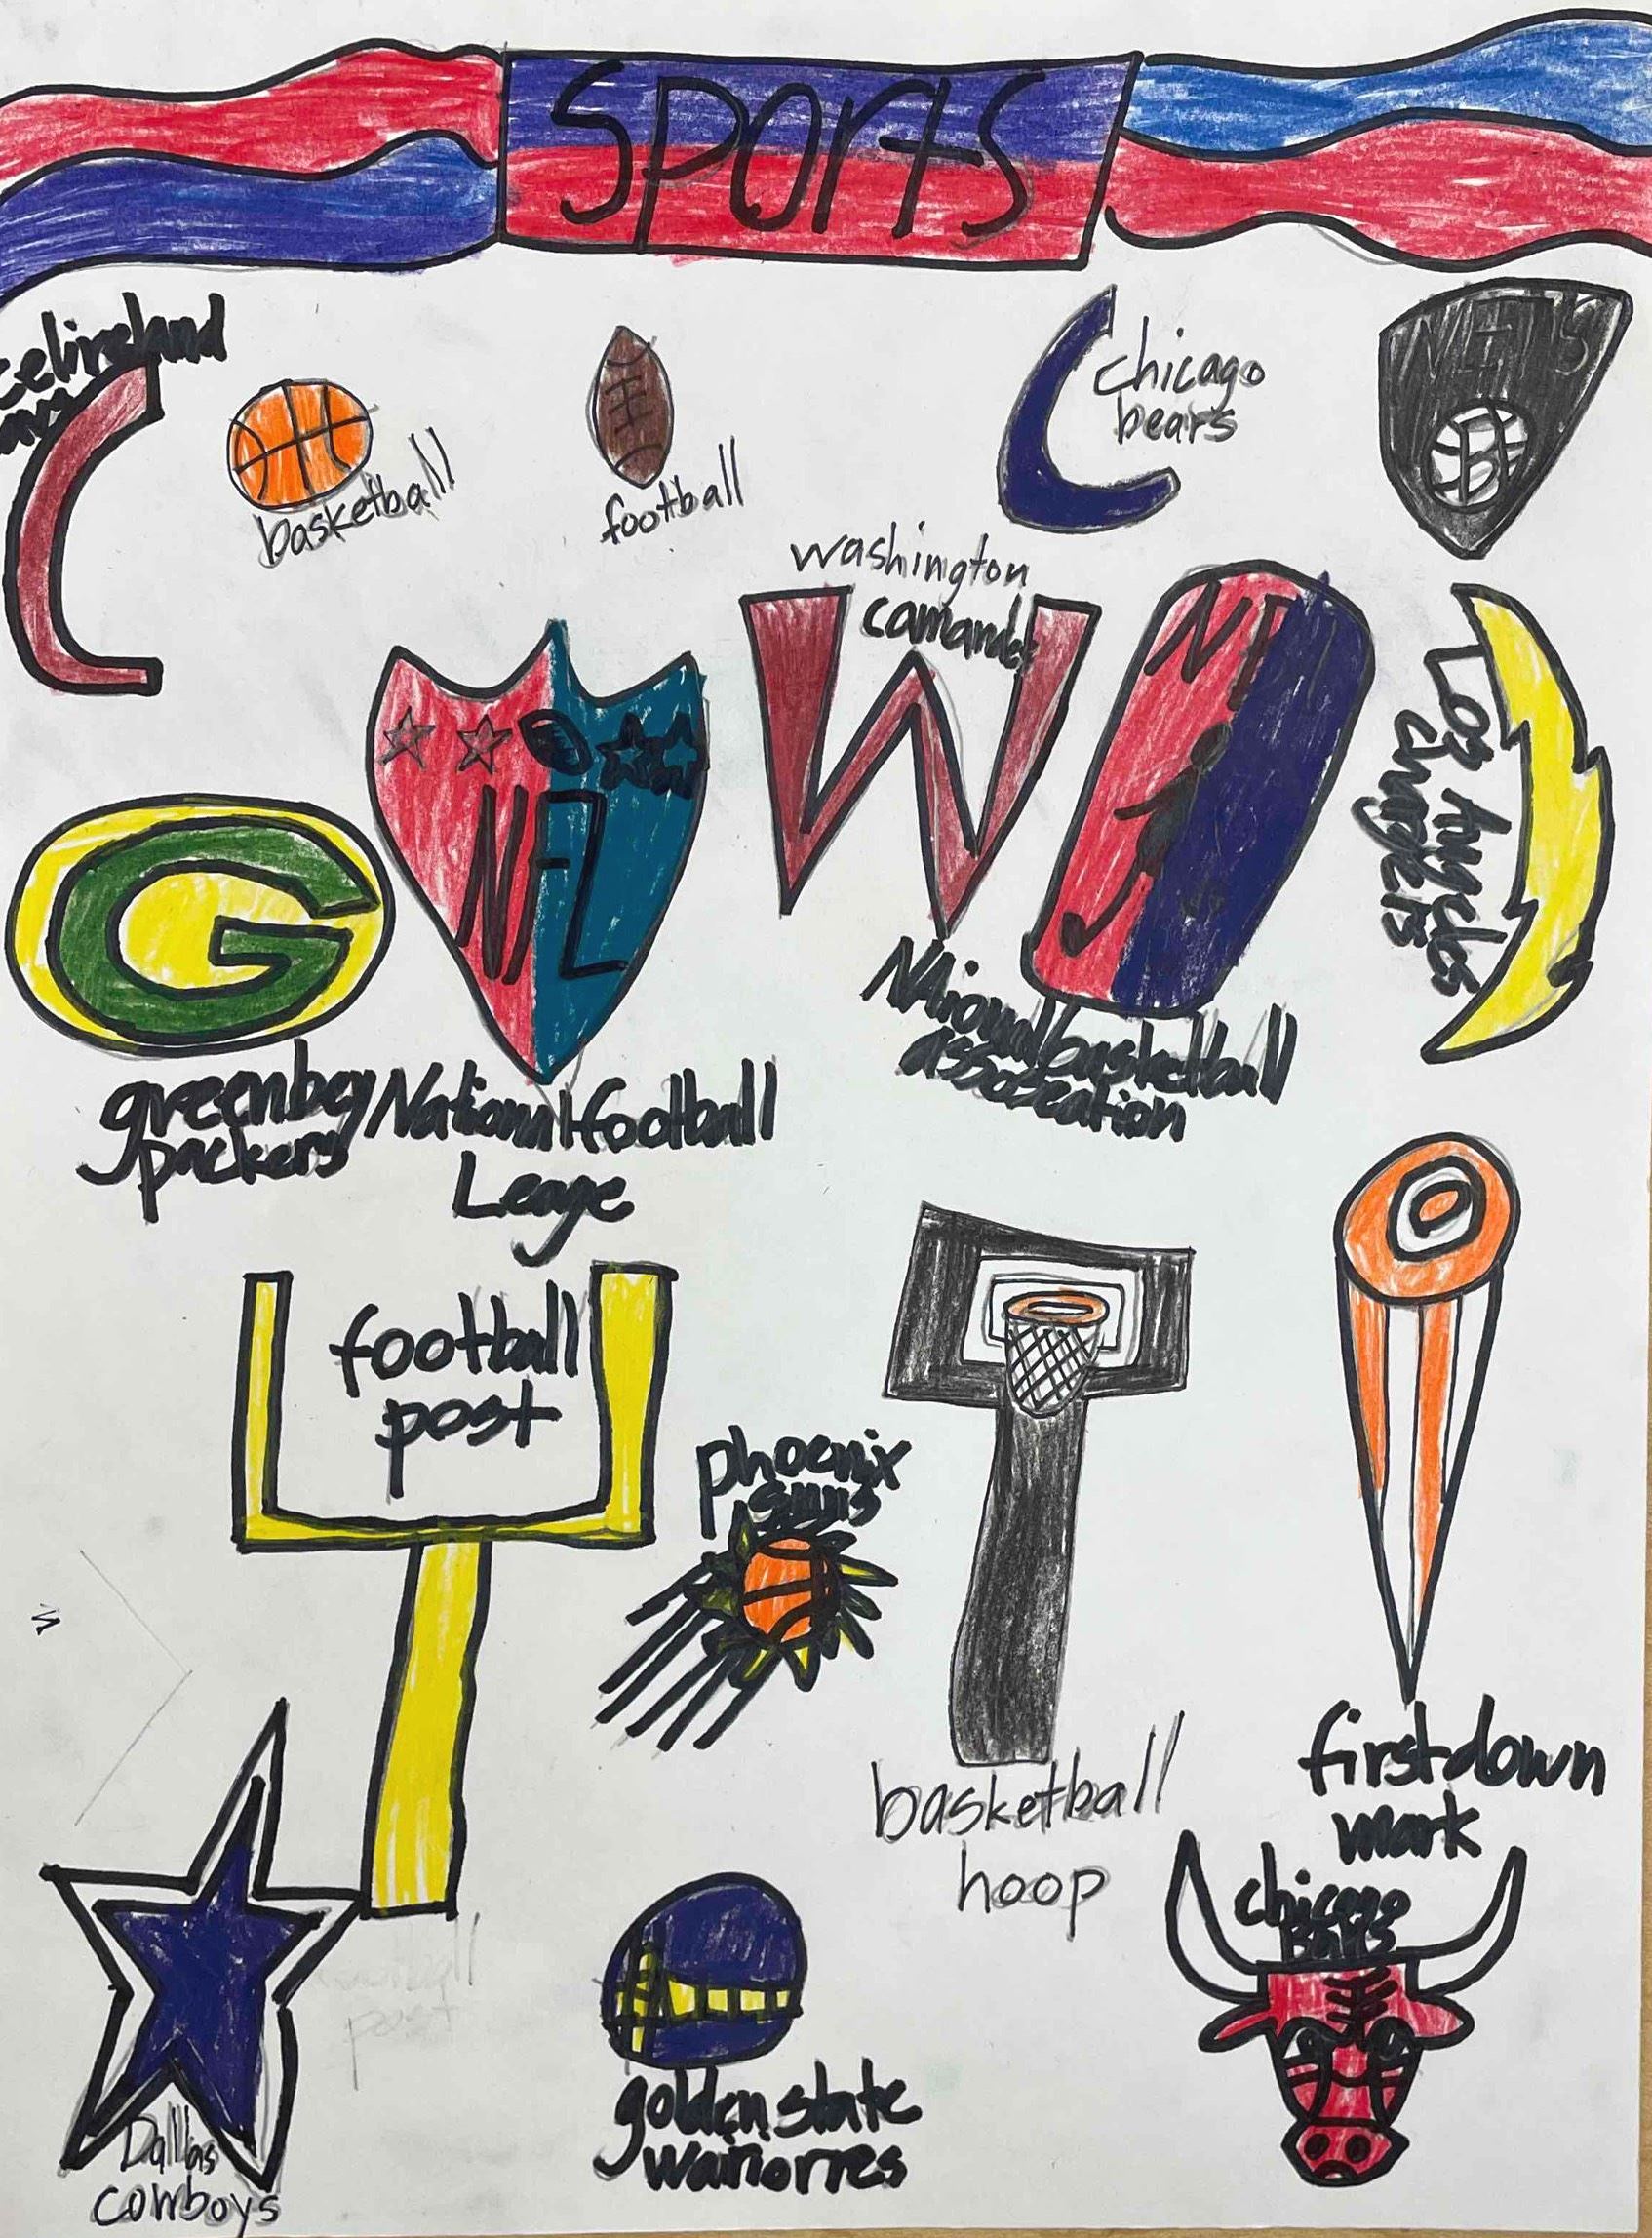 Sports
celireland
cavs
basketball
football
chicago
bears
NETS
B
washington
camandes
Los Angelos
Chargers
NFL
G
greenbey
packers
National football
Leage
National basketball
assoceation
football
post
phoenix
suns
basketball
hoop
firstdown
mark
chicago
Bulls
post
golden state
warriorres
Dallas
cowboys